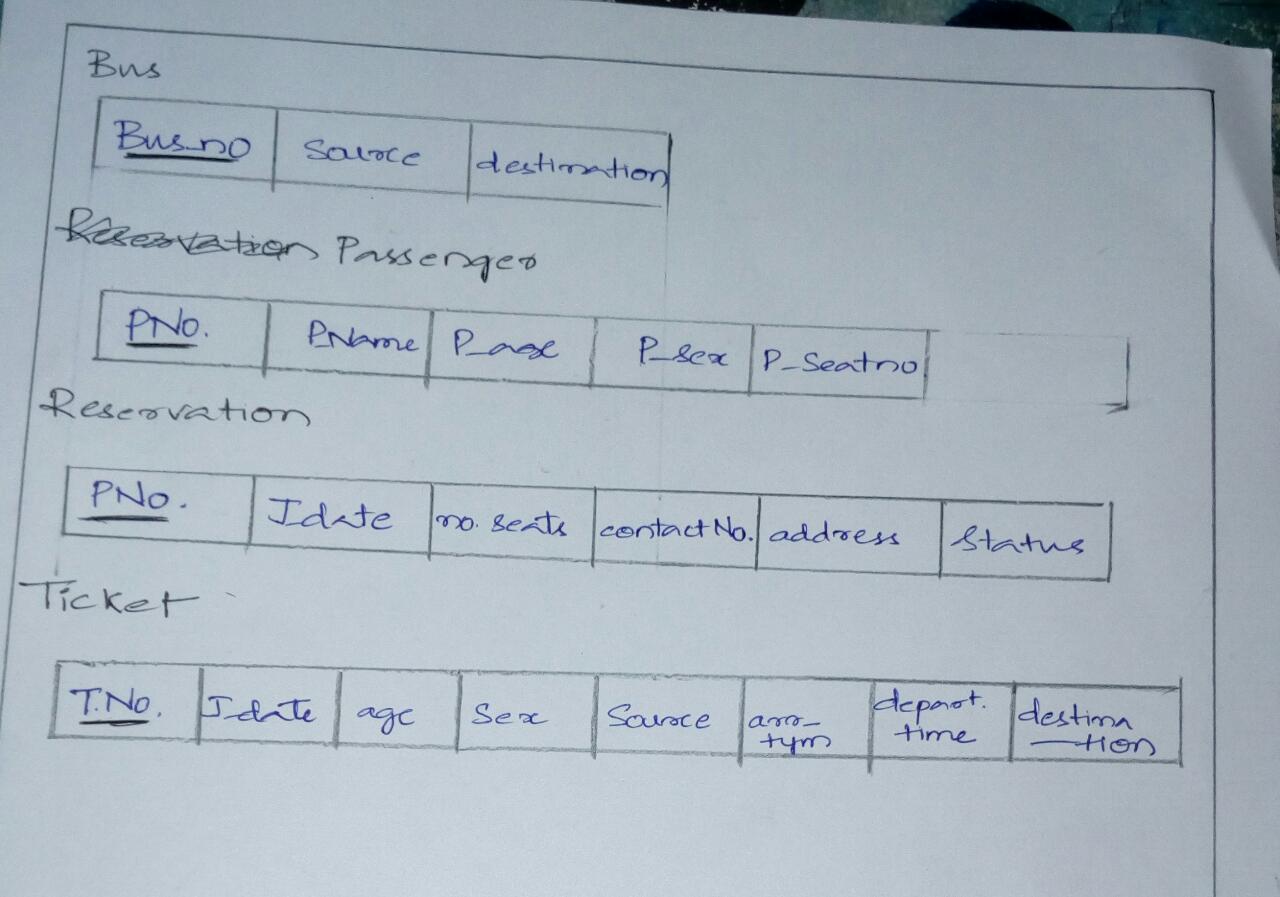 Bus
Bus_no source destination
Reservation Passenger
PNo. PName P_age P_sex P_Seatno
Reservation
PNo. Jdate no. seats contact No. address Status
Ticket
T.No. Jdate age Sex Source arr_ depart. destina
tym time —tion